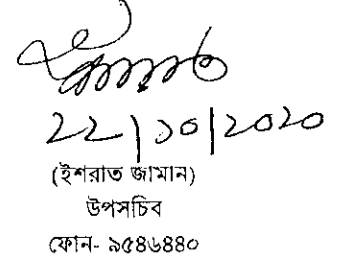 ২২|১০|২০২০
(ইশরাত জামান)
উপসচিব
ফোন- ৯৫৪৬৪৪০